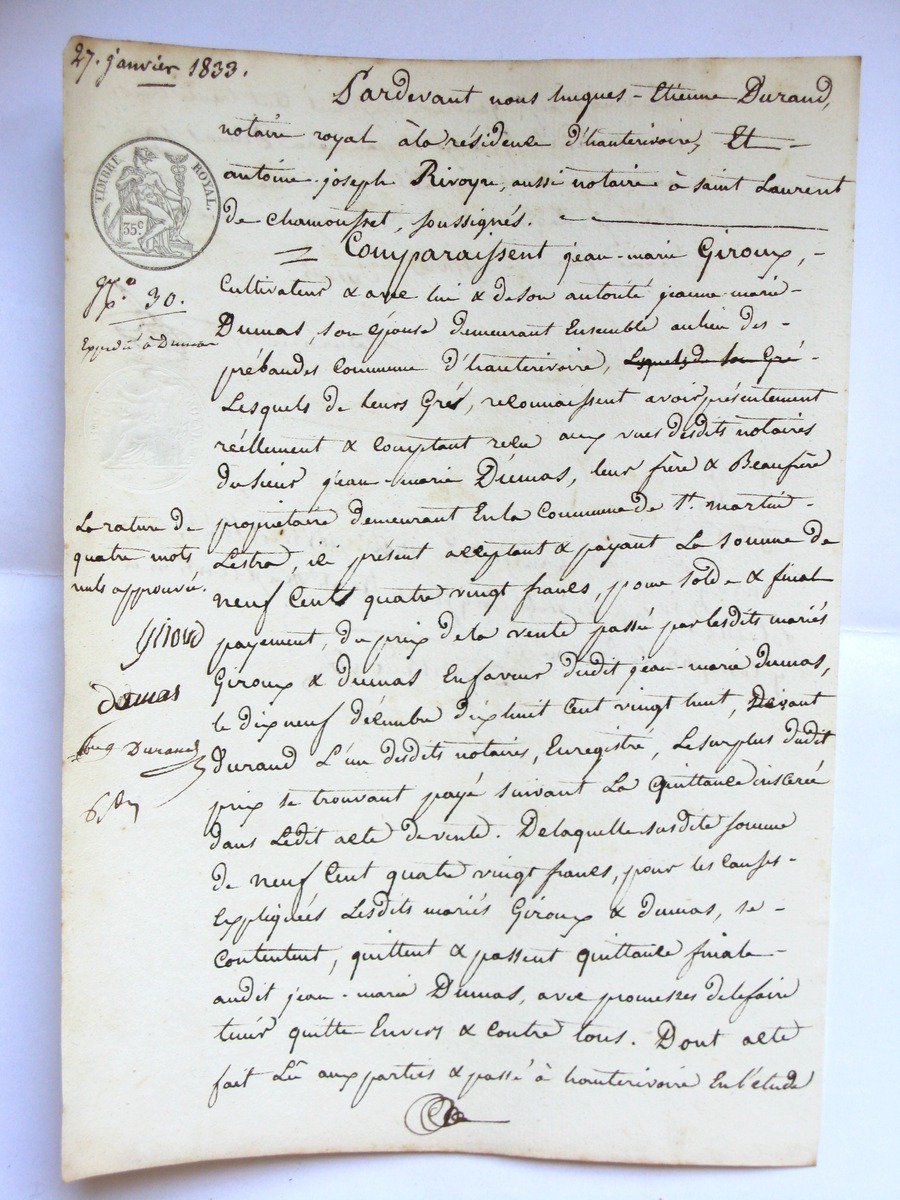 27. janvier 1833.
Pardevant nous hugues-Etienne Durand,
notaire royal à la résidence d'hauterivoire, Et
antoine-joseph Rivoyre, aussi notaire à saint Laurent
de Chamousset, soussignés.
TIMBRE ROYAL.
35c
= Comparaissent jean-marie Giroux,
N.º 30.
Expédié à Dumas
Cultivateur & avec lui & de son autorité jeanne-marie
Dumas, son épouse demeurant Ensemble au lieu des
prébandes Commune d'hauterivoire, Lesquels de son Gré
Lesquels de leurs Grés, reconnaissent avoir présentement
réellement & Comptant reçu aux vues desdits notaires
du sieur jean-marie Dumas, leur frère & Beaufrère
propriétaire demeurant En la Commune de St. martin
Lestra, ici présent acceptant & payant La somme de
neuf Cents quatre vingt francs, pour solde & final
payement, du prix de la vente passée par lesdits mariés
Giroux & Dumas En faveur dudit jean-marie Dumas,
le dix neuf décembre dix huit Cent vingt huit, Devant
Durand L'un desdits notaires, Enregistré, Le surplus dudit
prix se trouvant payé suivant La quittance inscerée
dans Ledit acte de vente. De laquelle susdite somme
de neuf Cent quatre vingt francs, pour les Causes
Expliquées Lesdits mariés Giroux & dumas, se
Contentent, quittent & passent quittance finale
audit jean-marie Dumas, avec promesses de le faire
tenir quitte Envers & Contre tous. Dont acte
fait Lû aux parties & passé à hauterivoire En l'étude
La rature de
quatre mots
nuls approuvée.
Giroud
Dumas
Durand